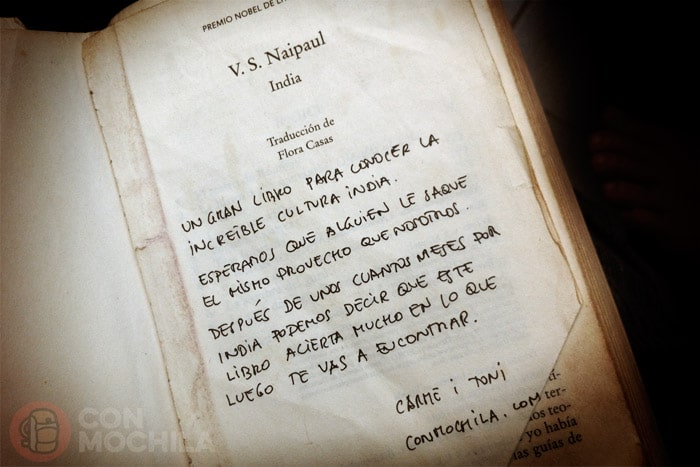 PREMIO NOBEL DE
V. S. Naipaul
India
Traducción de
Flora Casas
UN GRAN LIBRO PARA CONOCER LA
INCREÍBLE CULTURA INDIA.
ESPERAMOS QUE ALGUIEN LE SAQUE
EL MISMO PROVECHO QUE NOSOTROS.
DESPUÉS DE UNOS CUANTOS MESES POR
INDIA PODEMOS DECIR QUE ESTE
LIBRO ACIERTA MUCHO EN LO QUE
LUEGO TE VAS A ENCONTRAR.
CARME i TONI
CONMOCHILA.COM
ter-
nos teo-
yo había
las guías de
CON
MOCHILA